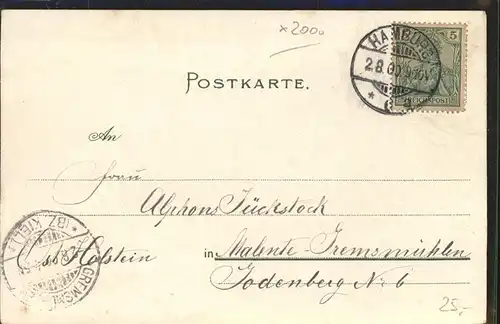 x2000
5
HAMBURG
2.8.00.9-10V.
REICHSPOST
POSTKARTE.
An
Frau
Alphons Tückstock
in Malente-Gremsmühlen
Ost Holstein
Godenberg No 6
(BZ. KIEL)
GREMSM
25.-